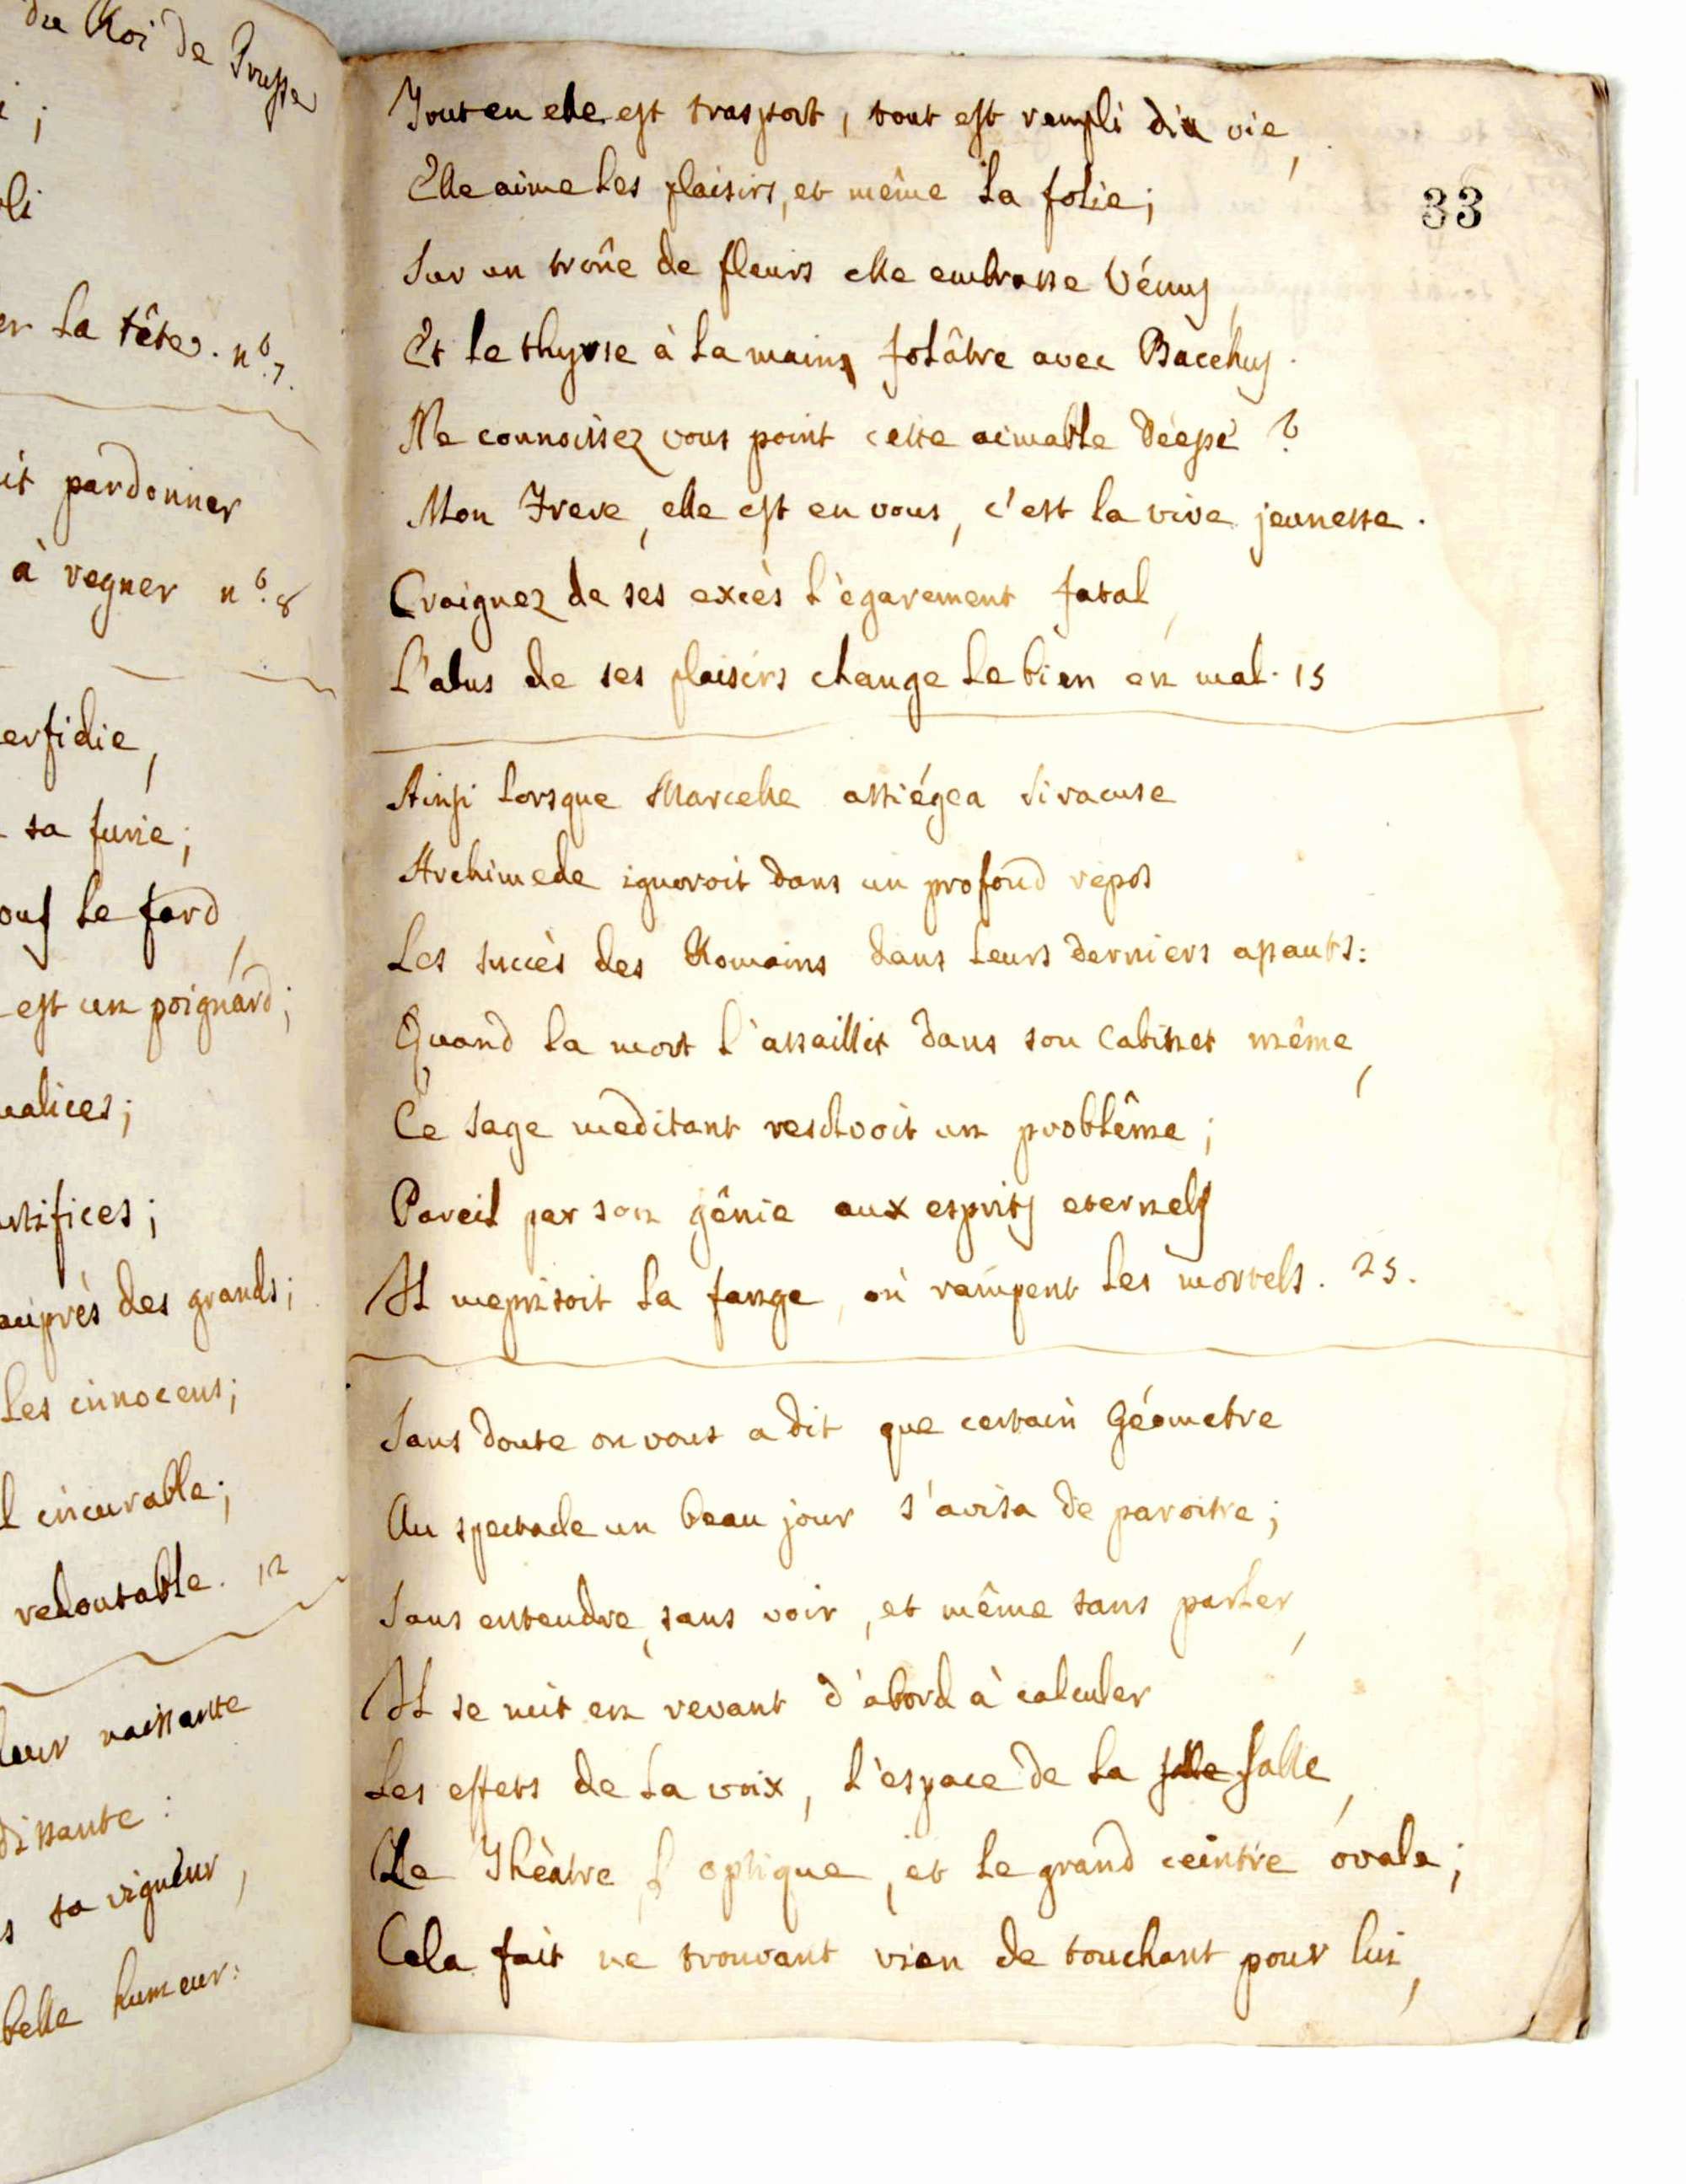 du Roi de Prusse
;
li
er la tête. n.º 7.
it pardonner
à regner n.º 8
erfidie,
sa furie;
ous le fard,
est un poignard;
malices;
artifices;
auprès des grands;
les innocens;
l incurable;
redoutable. 12
leur naissante
dissante:
s sa vigueur,
belle humeur:
33
Tout en elle est trasport, tout est rempli die vie,
Elle aime les plaisirs, et même la folie;
Sur un trône de fleurs elle embrasse Vénus,
Et le thyrse à la main folâtre avec Bacchus.
Ne connoissez vous point cette aimable Déesse ?
Mon Frere, elle est en vous, c'est la vive jeunesse.
Craignez de ses excès l'égarement fatal,
L'abus de ses plaisirs change le bien en mal. 15
Ainsi lorsque Marcelle assiégea Siracuse
Archimede ignoroit dans un profond repos
Les succès des Romains dans leurs derniers assauts:
Quand la mort l'assaillit dans son Cabinet même,
Ce Sage meditant resolvoit un problême;
Pareil par son génie aux esprits eternels
Il meprisoit la fange, où rampent les mortels. 25.
Sans doute on vous a dit que certain Géometre
Au spectacle un beau jour s'avisa de paroitre;
Sans entendre, sans voir, et même sans parler,
Il se mit en revant d'abord à calculer
Les effets de la voix, l'espace de la salle Salle,
Le Théatre, l'optique, et le grand ceintre ovale;
Cela fait ne trouvant rien de touchant pour lui,